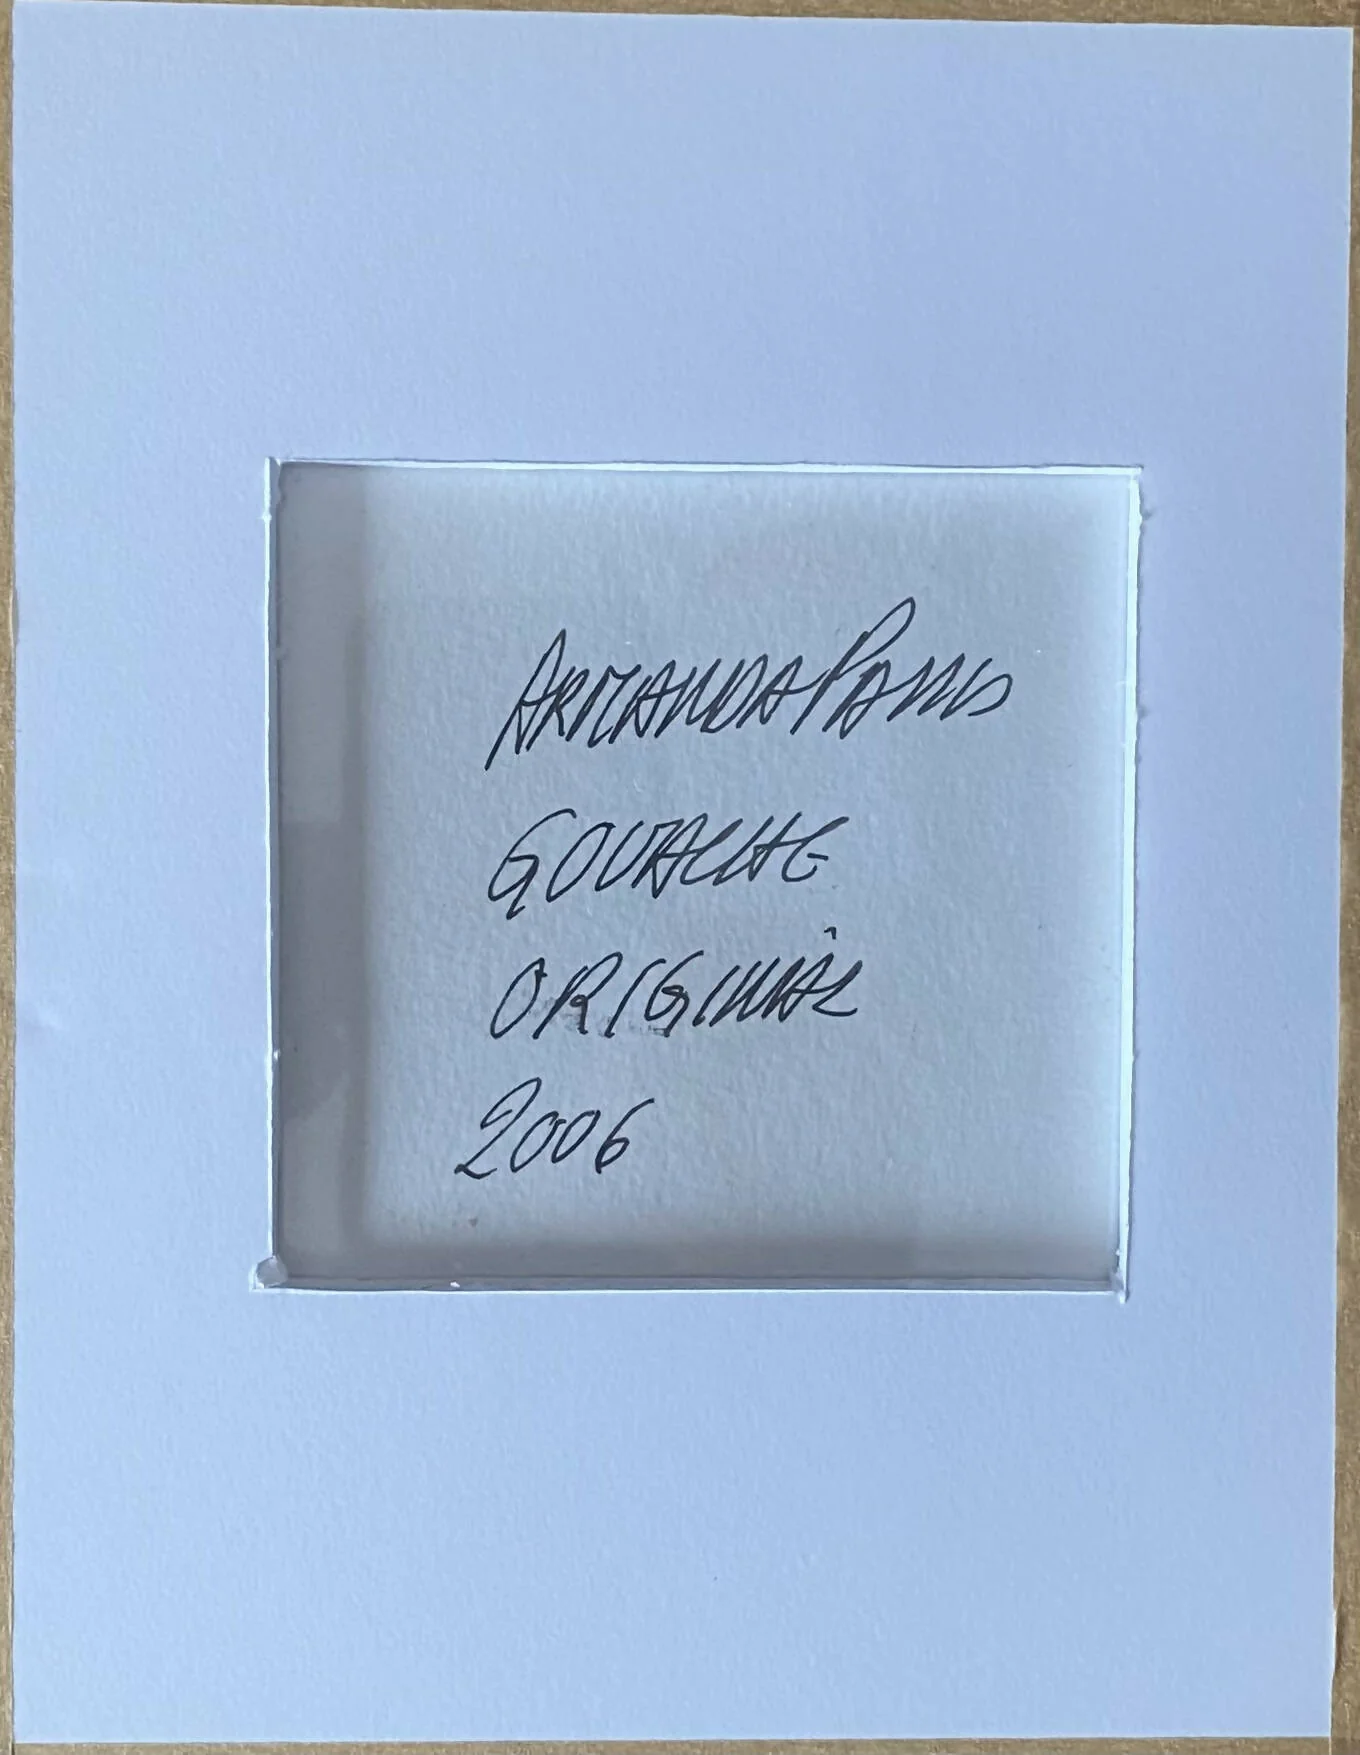 ARMANDA PASSOS
GOUACHE
ORIGINAL
2006